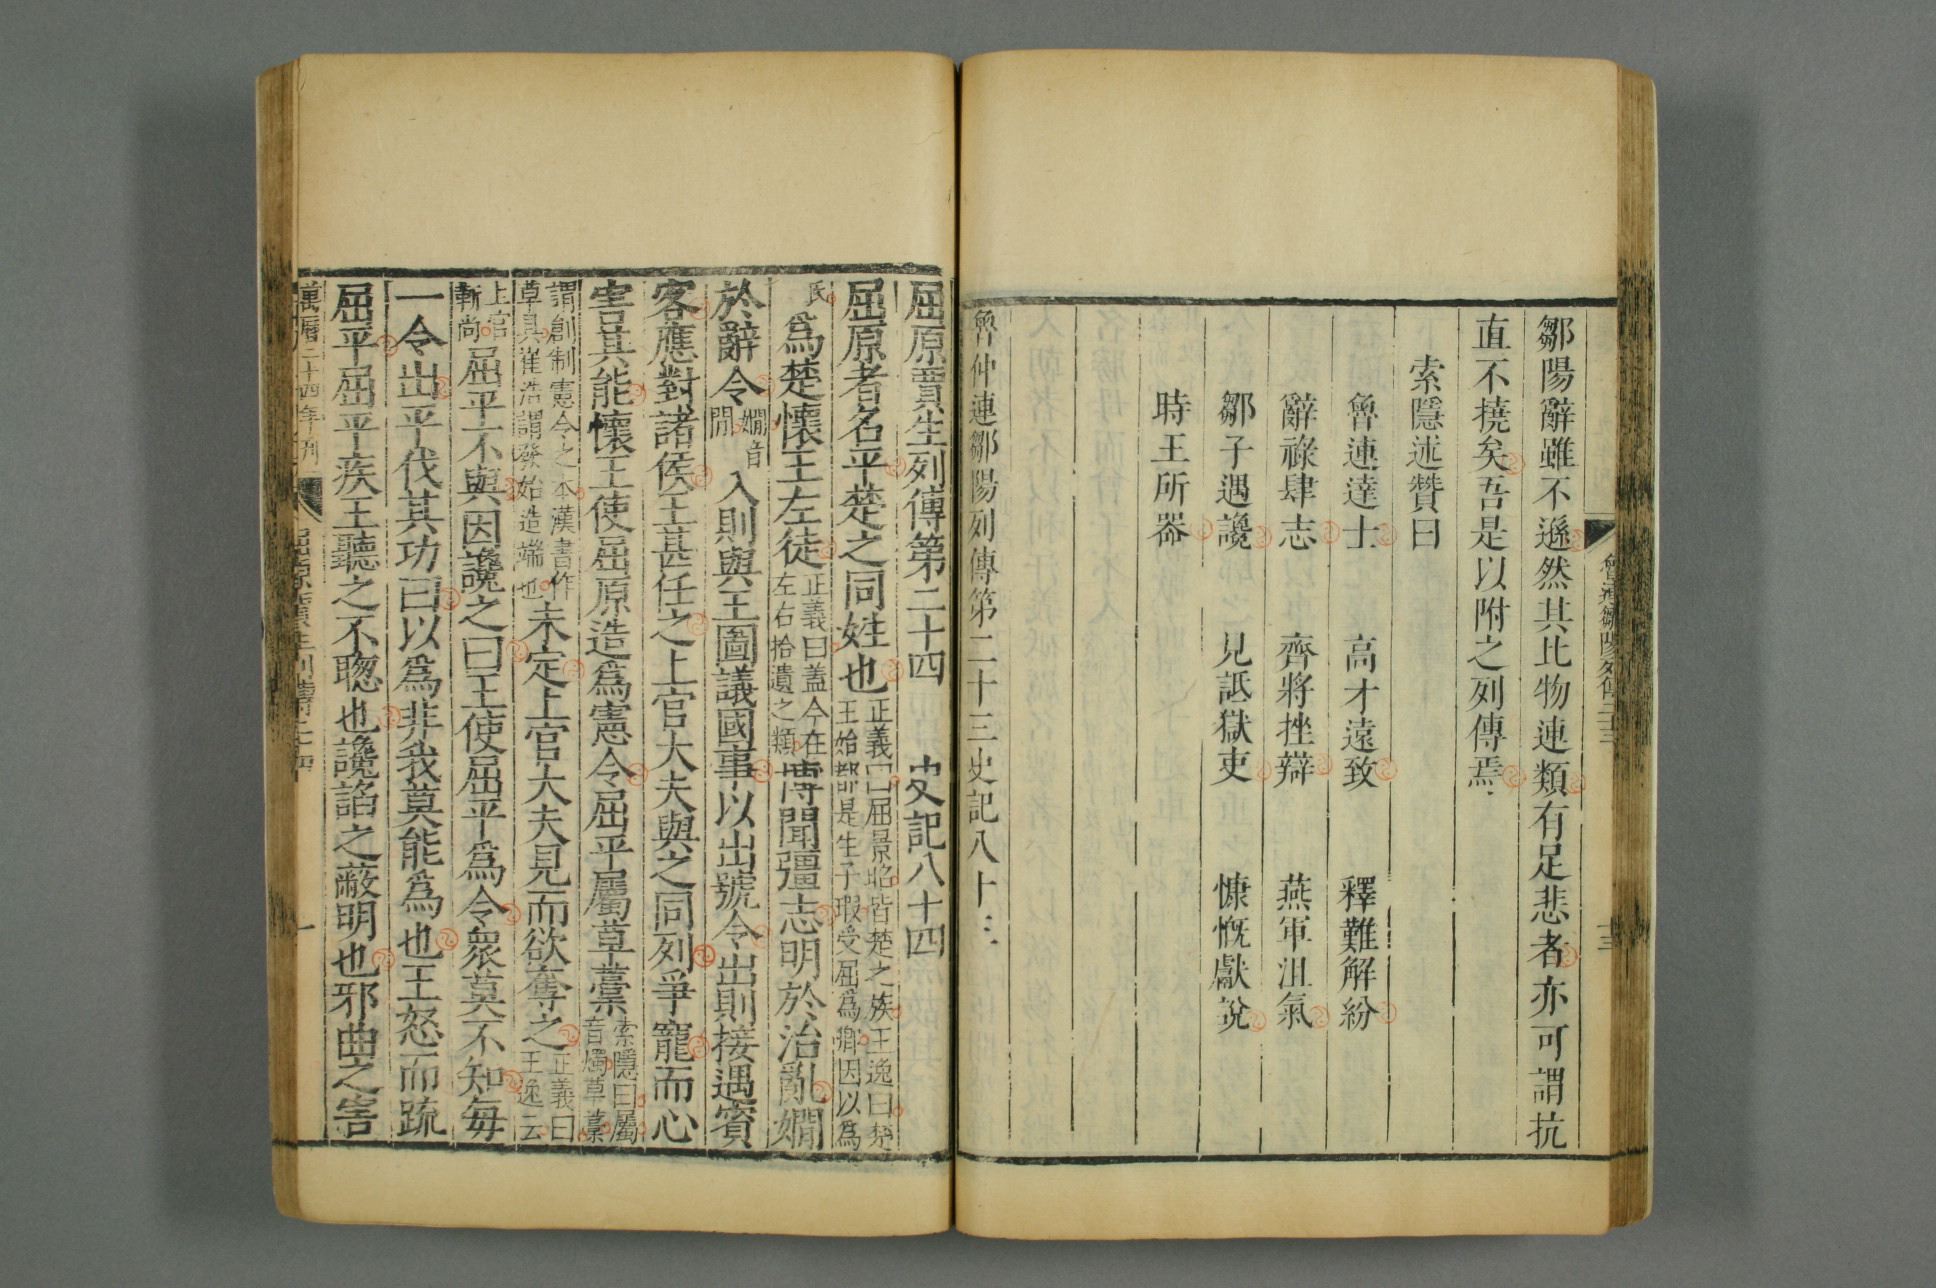 魯連鄒陽列傳二十三
十三
鄒陽辭雖不遜然其比物連類有足悲者亦可謂抗
直不撓矣吾是以附之列傳焉
索隱述贊曰
魯連達士 高才遠致 釋難解紛
辭祿肆志 齊將挫辯 燕軍沮氣
鄒子遇讒 見詆獄吏 慷慨獻說
時王所器
魯仲連鄒陽列傳第二十三史記八十三
屈原賈生列傳第二十四 史記八十四
屈原者名平楚之同姓也正義曰屈景昭皆楚之族王逸曰楚王始都是生子瑕受屈爲卿因以爲
氏爲楚懷王左徒正義曰蓋今在左右拾遺之類博聞彊志明於治亂嫺
於辭令嫺音閒入則與王圖議國事以出號令出則接遇賓
客應對諸侯王甚任之上官大夫與之同列爭寵而心
害其能懷王使屈原造爲憲令屈平屬草藁索隱曰屬音燭草藁
謂創制憲令之本漢書作草具崔浩謂發始造端也未定上官大夫見而欲奪之正義曰王逸云
上官靳尚屈平不與因讒之曰王使屈平爲令衆莫不知每
一令出平伐其功曰以爲非我莫能爲也王怒而疏
屈平屈平疾王聽之不聰也讒諂之蔽明也邪曲之害
萬曆二十四年刊
屈原賈生列傳二十四
一